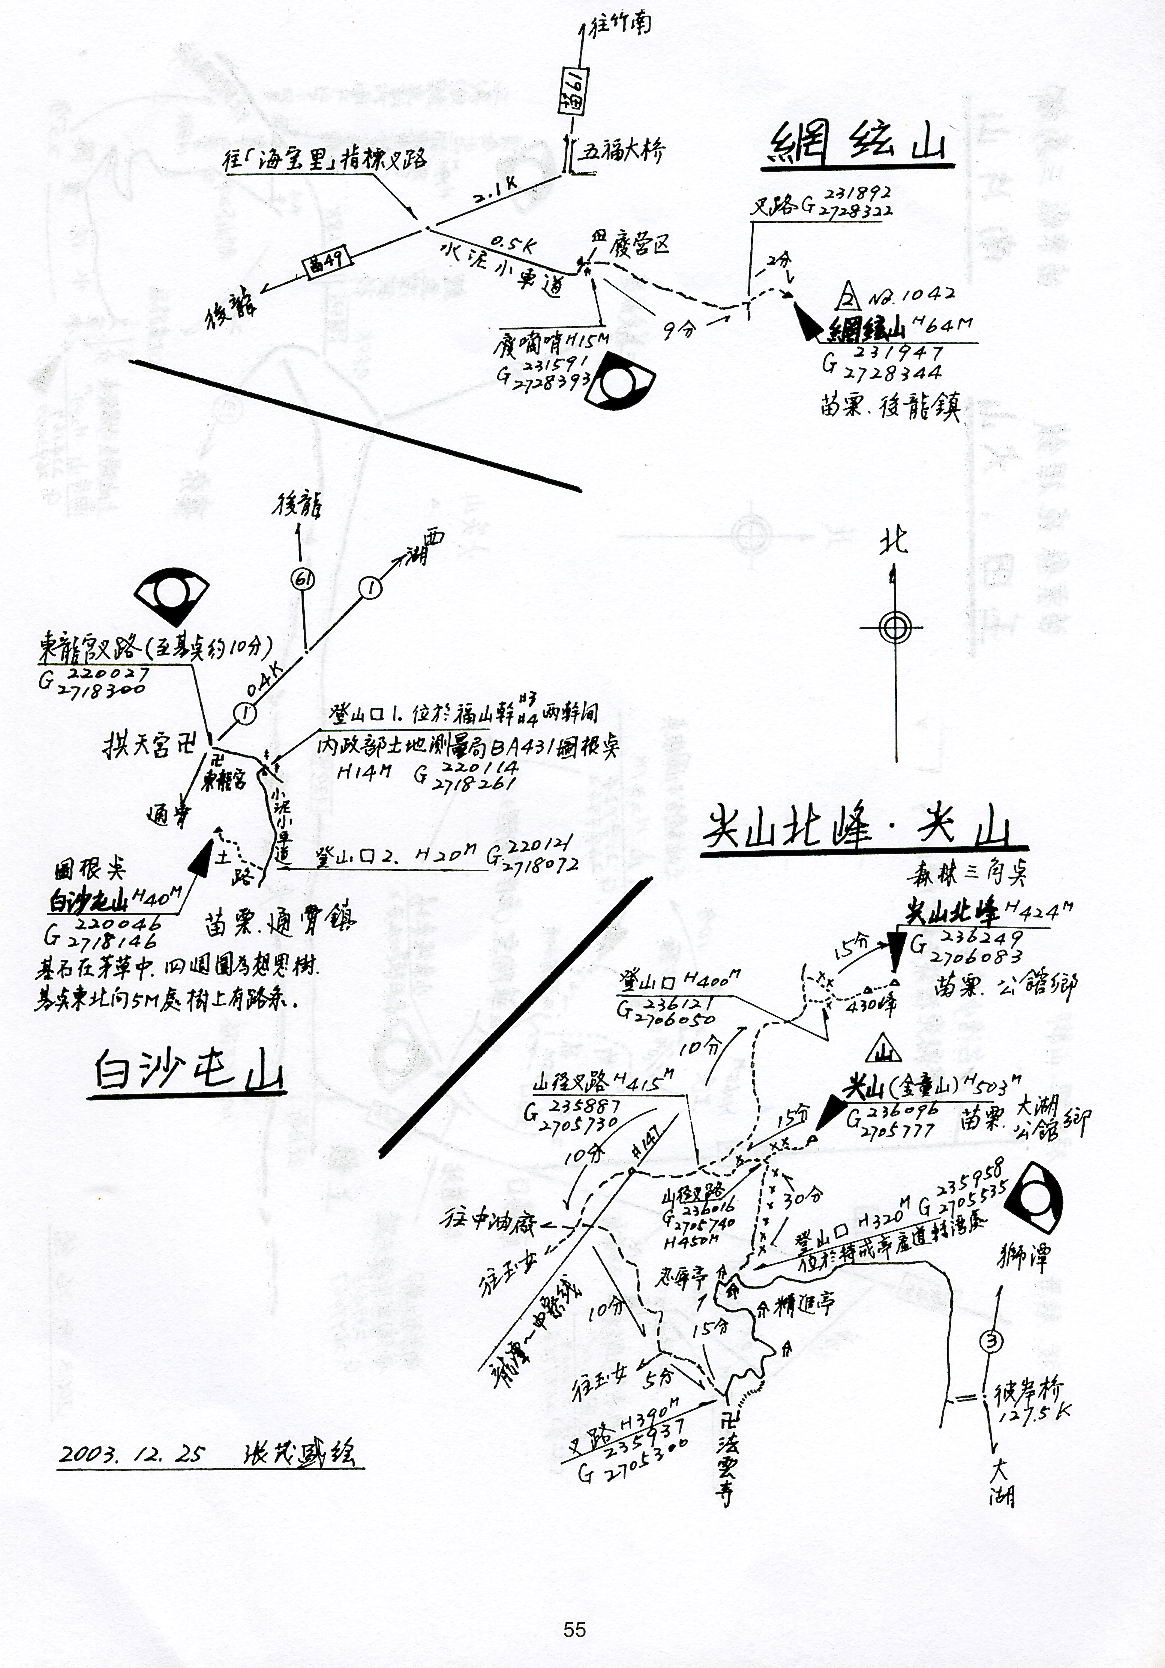 往竹南
苗61
五福大桥
網絃山
往「海宝里」指標叉路
2.1K
叉路G 231892
2728322
0.5K
水泥小車道
廢营区
2分
苗49
後龍
9分
2 No.1042
網絃山 H64M
G 231947
2728344
苗栗.後龍鎮
廢崗哨H15M
G 231591
2728393
後龍
西湖
61
1
北
東龍宮叉路(至基点約10分)
G 220027
2718300
0.4K
1
登山口1.位於福山幹#3 #4两幹间
内政部土地測量局BA431圖根点
H14M G 220114
2718261
拱天宮卍
卍
東龍宮
通霄
小泥小車道
土路
登山口2. H20M G 220121
2718072
圖根点
白沙屯山H40M
G 220046
2718146
苗栗.通霄鎮
基石在茅草中.四週圍為想思樹.
基点東北向5M处樹上有路条.
白沙屯山
尖山北峰·尖山
森林三角点
尖山北峰H424M
G 236249
2706083
苗栗.公館鄉
15分
430峰
登山口H400M
G 236121
2706050
10分
山
尖山(金童山)H503M
G 236096
2705777
苗栗.大湖
公館鄉
山径叉路H415M
G 235887
2705730
10分
#147
15分
山径叉路
G 236016
2705740
H450M
30分
登山口H320M G 235958
2705535
往中油廠
往玉女
10分
15分
精進亭
獅潭
3
往玉女
5分
彼岸桥
127.5K
叉路H390M
G 235937
2705300
卍法雲寺
大湖
2003.12.25 張茂盛绘
55